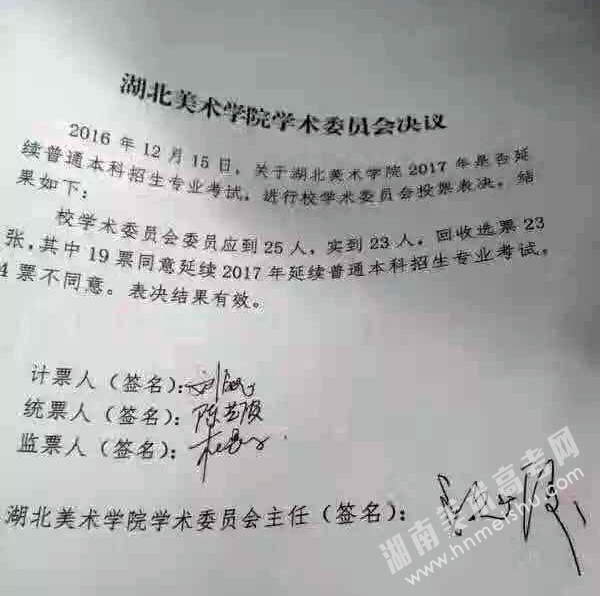 湖北美术学院学术委员会决议
2016年12月15日，关于湖北美术学院2017年是否延
续普通本科招生专业考试，进行校学术委员会投票表决，结
果如下：
校学术委员会委员应到25人，实到23人，回收选票23
张，其中19票同意延续2017年延续普通本科招生专业考试。
4票不同意。表决结果有效。
计票人（签名）：
统票人（签名）：
监票人（签名）：
湖北美术学院学术委员会主任（签名）：
湖南美术高考网
www.hnmeishu.com